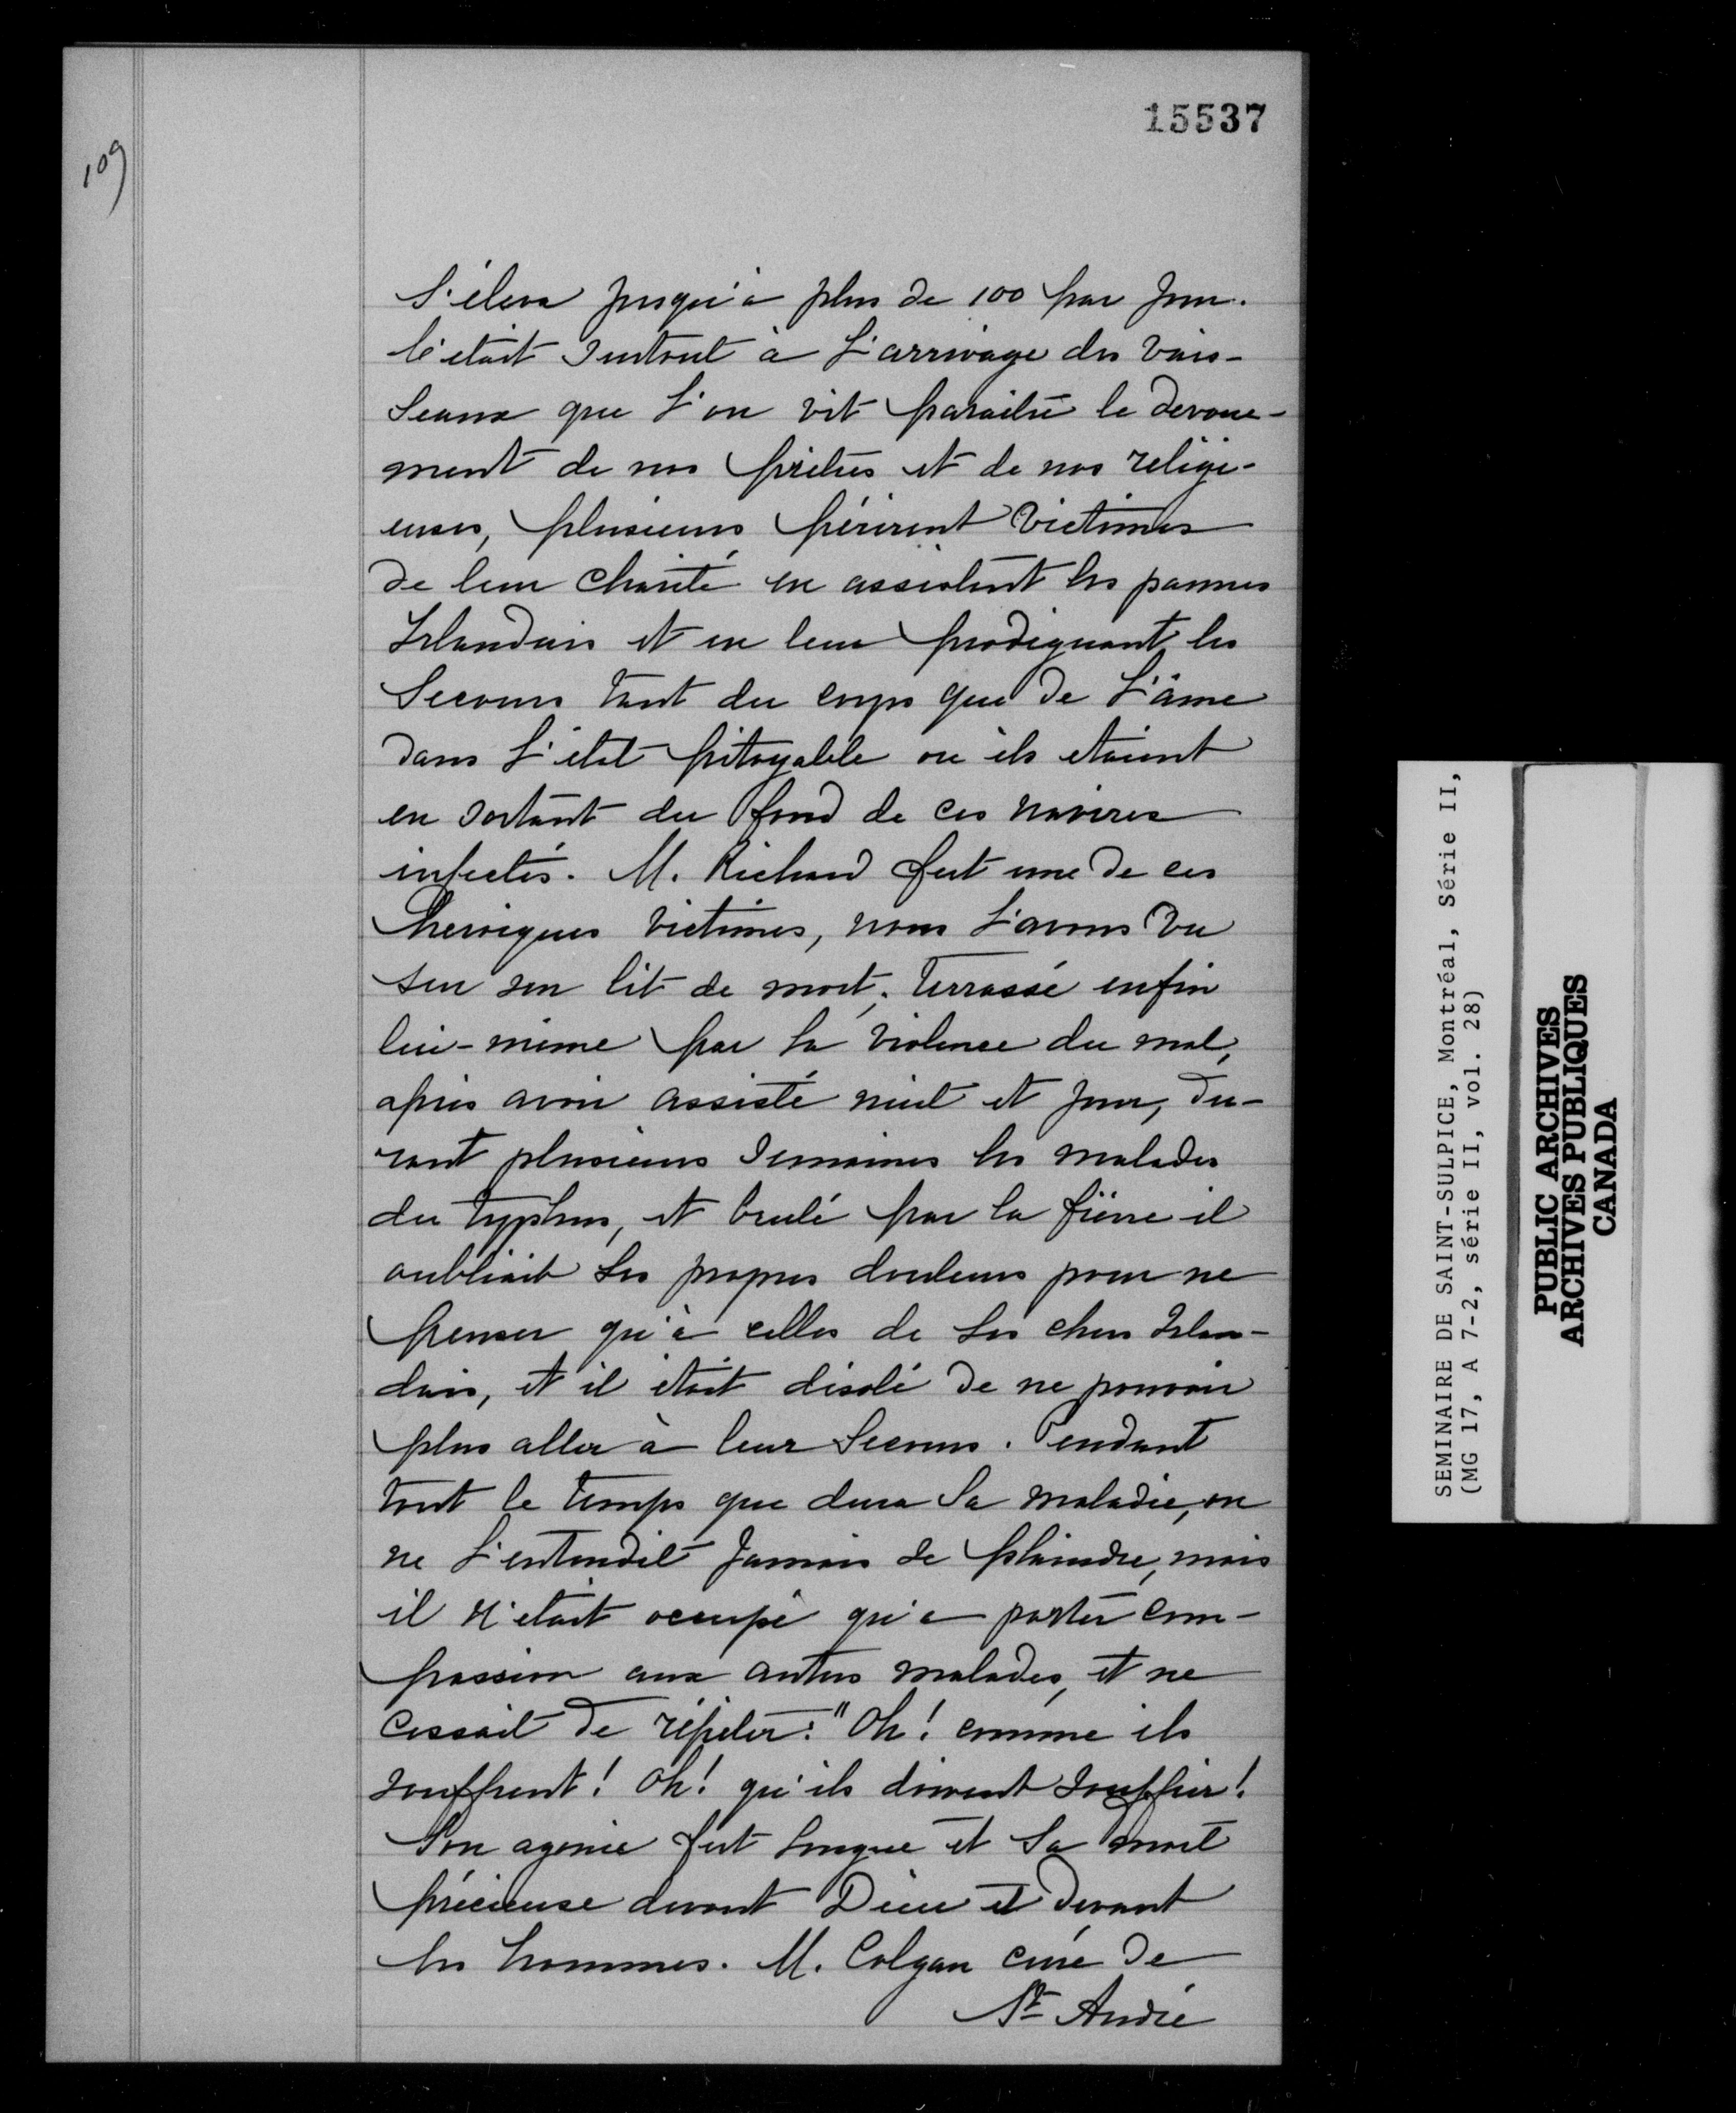 15537
109
S'éleva jusqu'à plus de 100 par jour.
C'était surtout à l'arrivage des vais-
seaux que l'on vit paraitre le devoue-
ment de nos prêtres et de nos religi-
euses, plusieurs périrent victimes
de leur charité en assistant les pauvres
Irlandais et en leur prodiguant les
secours tant du corps que de l'âme
dans l'état pitoyable ou ils etaient
en sortant du fond de ces navires
infectés. M. Richard fut une de ces
heroiques victimes, nous l'avons vu
sur son lit de mort, terrassé enfin
lui-même par la violence du mal,
après avoir assisté nuit et jour, du-
rant plusieurs semaines les malades
du typhus, et brulé par la fièvre il
oubliait ses propres douleurs pour ne
penser qu'à celles de ses chers Irlan-
dais, et il était désolé de ne pouvoir
plus aller à leur secours. Pendant
tout le temps que dura sa maladie, on
ne l'entendit jamais se plaindre, mais
il n'était occupé qu'a porter com-
passion aux autres malades, et ne
cessait de répéter: "Oh! comme ils
souffrent! Oh! qu'ils doivent souffrir!
Son agonie fut longue et sa mort
précieuse devant Dieu et devant
les hommes. M. Colgan curé de
St André
SEMINAIRE DE SAINT-SULPICE, Montréal, Série II,
(MG 17, A 7-2, série II, vol. 28)
PUBLIC ARCHIVES
ARCHIVES PUBLIQUES
CANADA